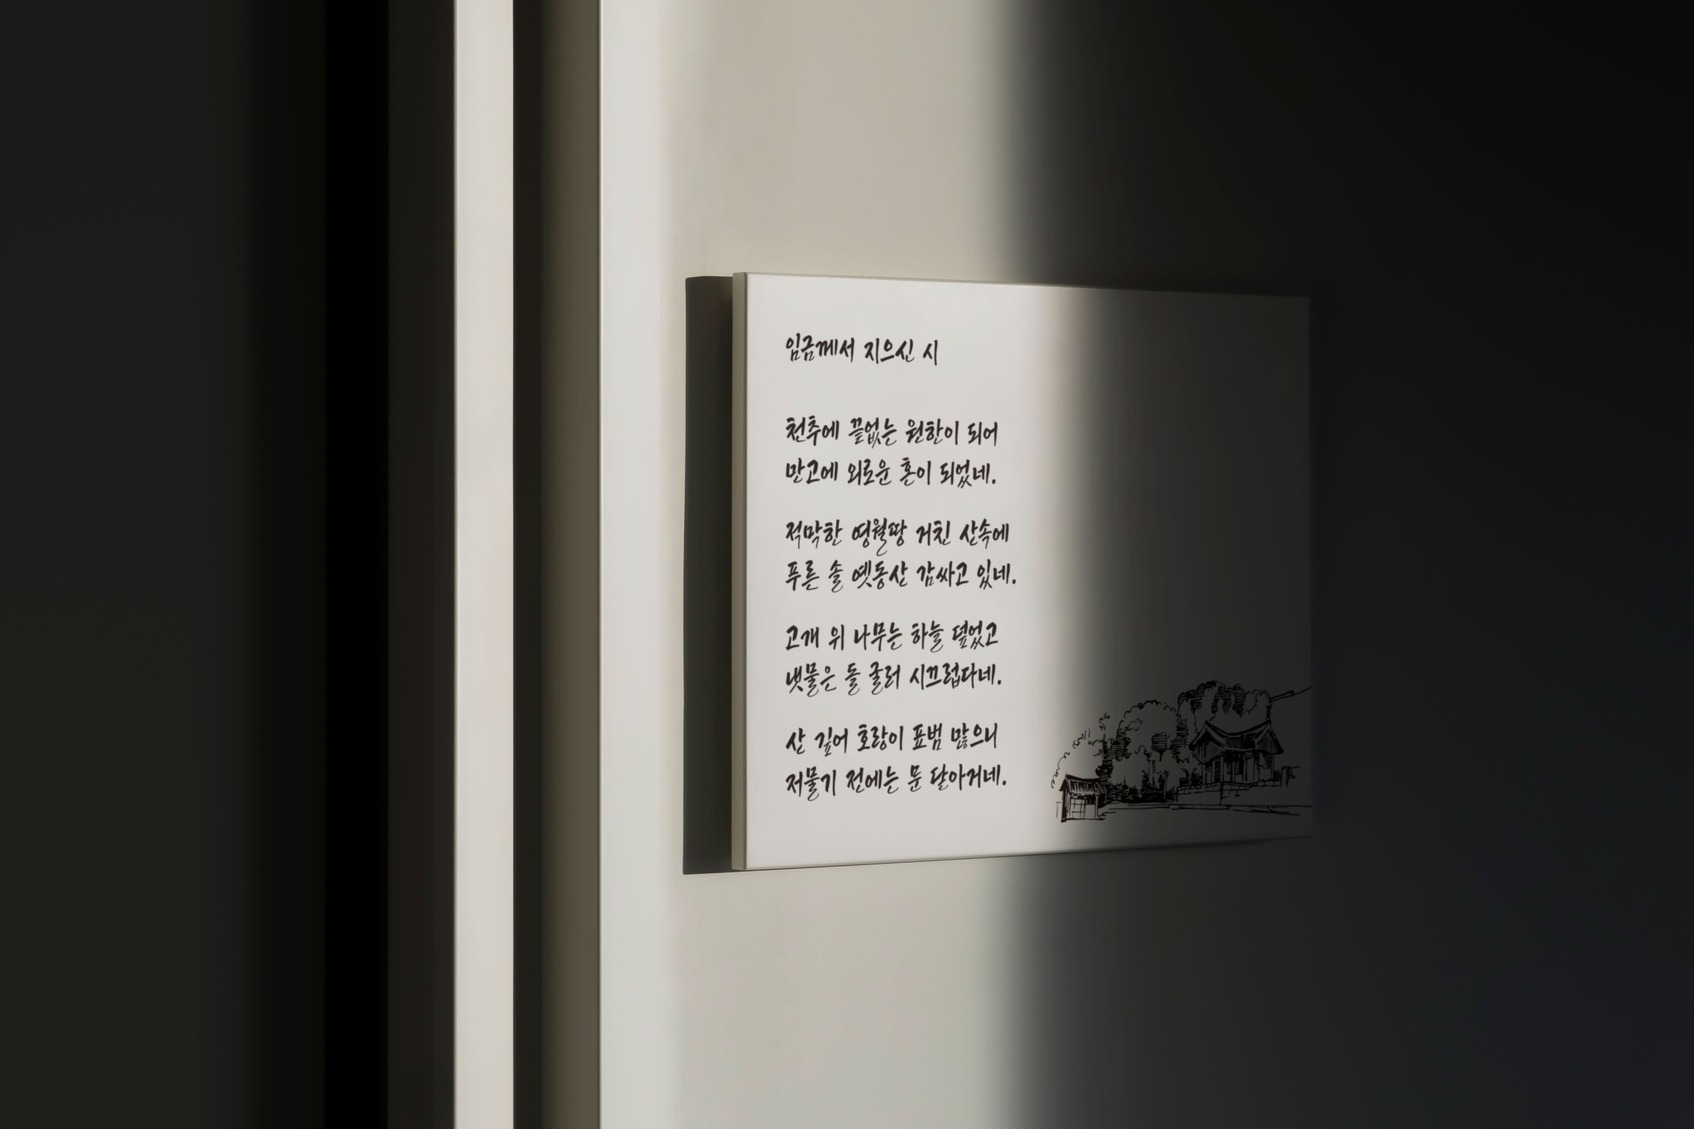 임금께서 지으신 시
천추에 끝없는 원한이 되어
만고에 외로운 혼이 되었네.
적막한 영월땅 거친 산속에
푸른 솔 옛동산 감싸고 있네.
고개 위 나무는 하늘 덮었고
냇물은 돌 굴러 시끄럽다네.
산 깊어 호랑이 표범 많으니
저물기 전에는 문 닫아거네.